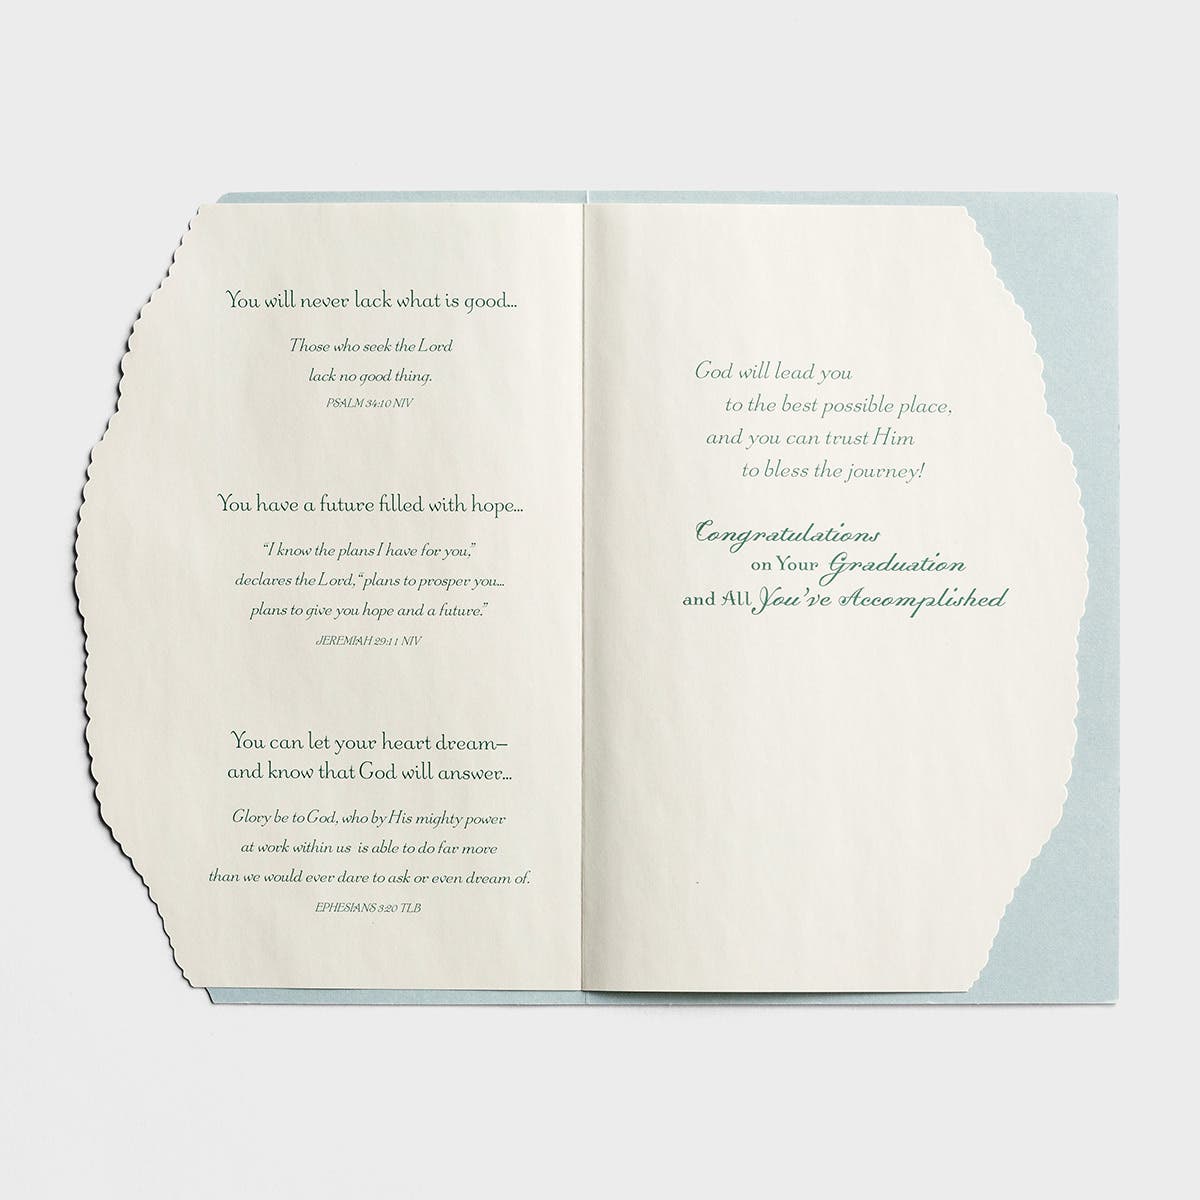 You will never lack what is good...
Those who seek the Lord
lack no good thing.
PSALM 34:10 NIV
You have a future filled with hope...
“I know the plans I have for you,”
declares the Lord, “plans to prosper you...
plans to give you hope and a future.”
JEREMIAH 29:11 NIV
You can let your heart dream–
and know that God will answer...
Glory be to God, who by His mighty power
at work within us is able to do far more
than we would ever dare to ask or even dream of.
EPHESIANS 3:20 TLB
God will lead you
to the best possible place,
and you can trust Him
to bless the journey!
Congratulations
on Your Graduation
and All You've Accomplished